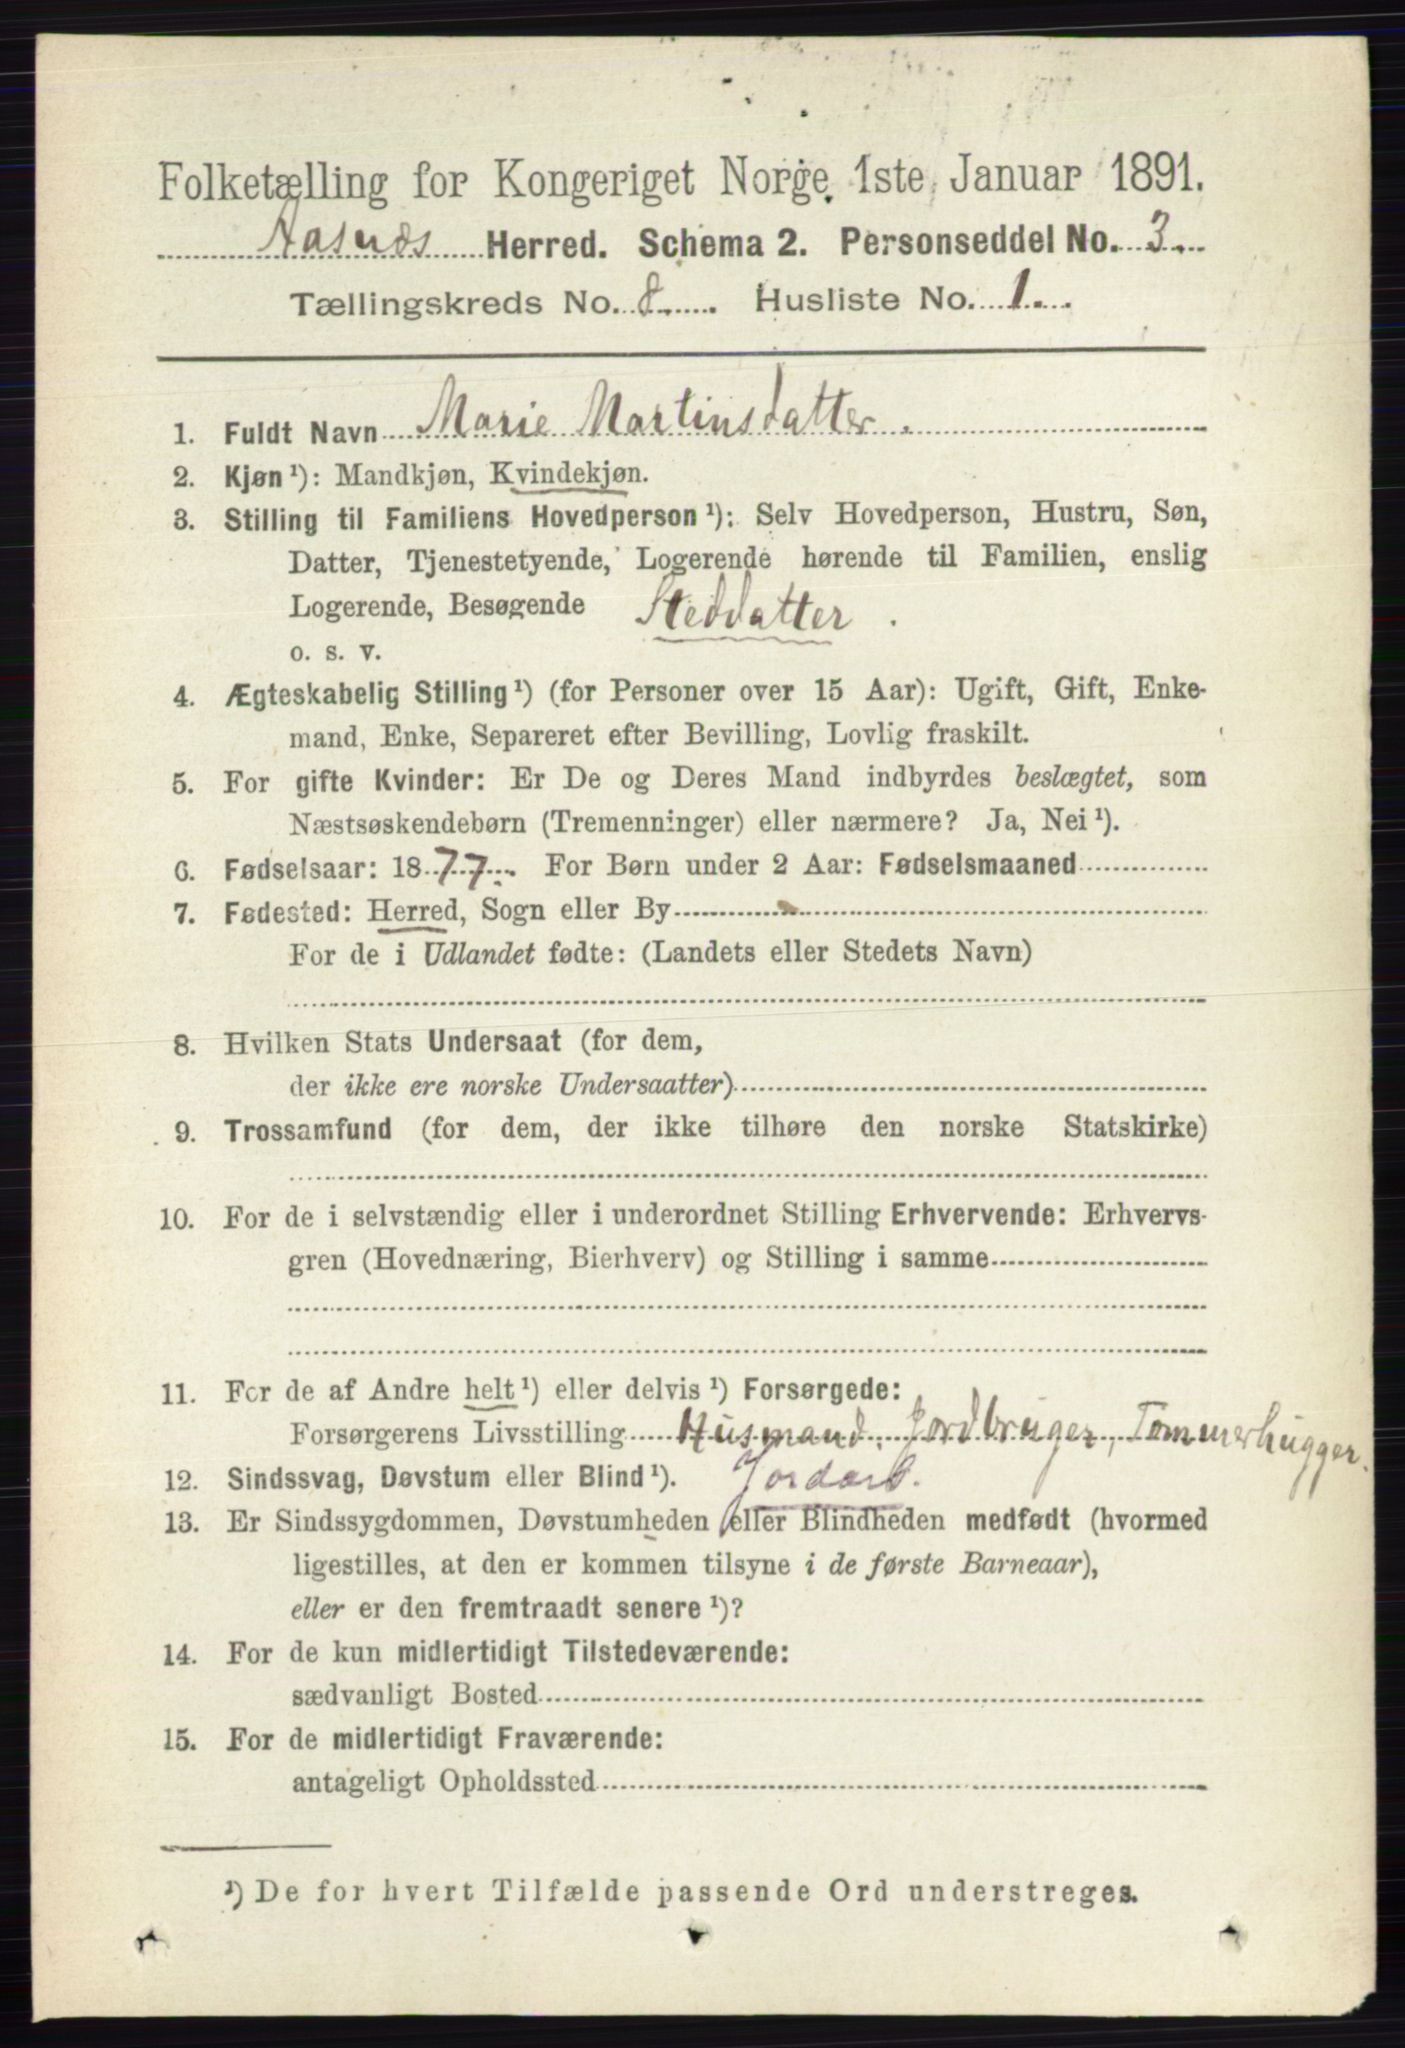 Folketælling for Kongeriget Norge 1ste Januar 1891.
Aasnes Herred. Schema 2. Personseddel No. 3.
Tællingskreds No. 8. Husliste No. 1.
1. Fuldt Navn Marie Martinsdatter.
2. Kjøn¹): Mandkjøn, Kvindekjøn.
3. Stilling til Familiens Hovedperson¹): Selv Hovedperson, Hustru, Søn,
Datter, Tjenestetyende, Logerende hørende til Familien, enslig
Logerende, Besøgende Steddatter.
o. s. v.
4. Ægteskabelig Stilling¹) (for Personer over 15 Aar): Ugift, Gift, Enke-
mand, Enke, Separeret efter Bevilling, Lovlig fraskilt.
5. For gifte Kvinder: Er De og Deres Mand indbyrdes beslægtet, som
Næstsøskendebørn (Tremenninger) eller nærmere? Ja, Nei¹).
6. Fødselsaar: 1877. For Børn under 2 Aar: Fødselsmaaned
7. Fødested: Herred, Sogn eller By
For de i Udlandet fødte: (Landets eller Stedets Navn)
8. Hvilken Stats Undersaat (for dem,
der ikke ere norske Undersaatter)
9. Trossamfund (for dem, der ikke tilhøre den norske Statskirke)
10. For de i selvstændig eller i underordnet Stilling Erhvervende: Erhvervs-
gren (Hovednæring, Bierhverv) og Stilling i samme
11. For de af Andre helt¹) eller delvis¹) Forsørgede:
Forsørgerens Livsstilling Husmand, Jordbruger, Tømmerhugger.
12. Sindssvag, Døvstum eller Blind¹). Jordarb.
13. Er Sindssygdommen, Døvstumheden eller Blindheden medfødt (hvormed
ligestilles, at den er kommen tilsyne i de første Barneaar),
eller er den fremtraadt senere¹)?
14. For de kun midlertidigt Tilstedeværende:
sædvanligt Bosted
15. For de midlertidigt Fraværende:
antageligt Opholdssted
¹) De for hvert Tilfælde passende Ord understreges.